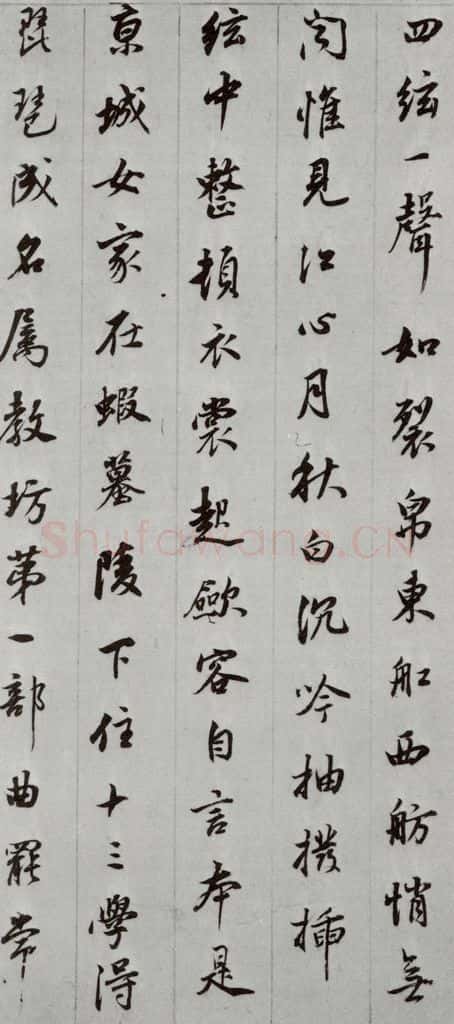 四絃一聲如裂帛東舡西舫悄無
惟見江心月秋白沉吟抽撥插
絃中整頓衣裳起歛容自言本是
京城女家在蝦蟇陵下住十三學得
琵琶成名屬教坊第一部曲罷常
Shufawang.CN